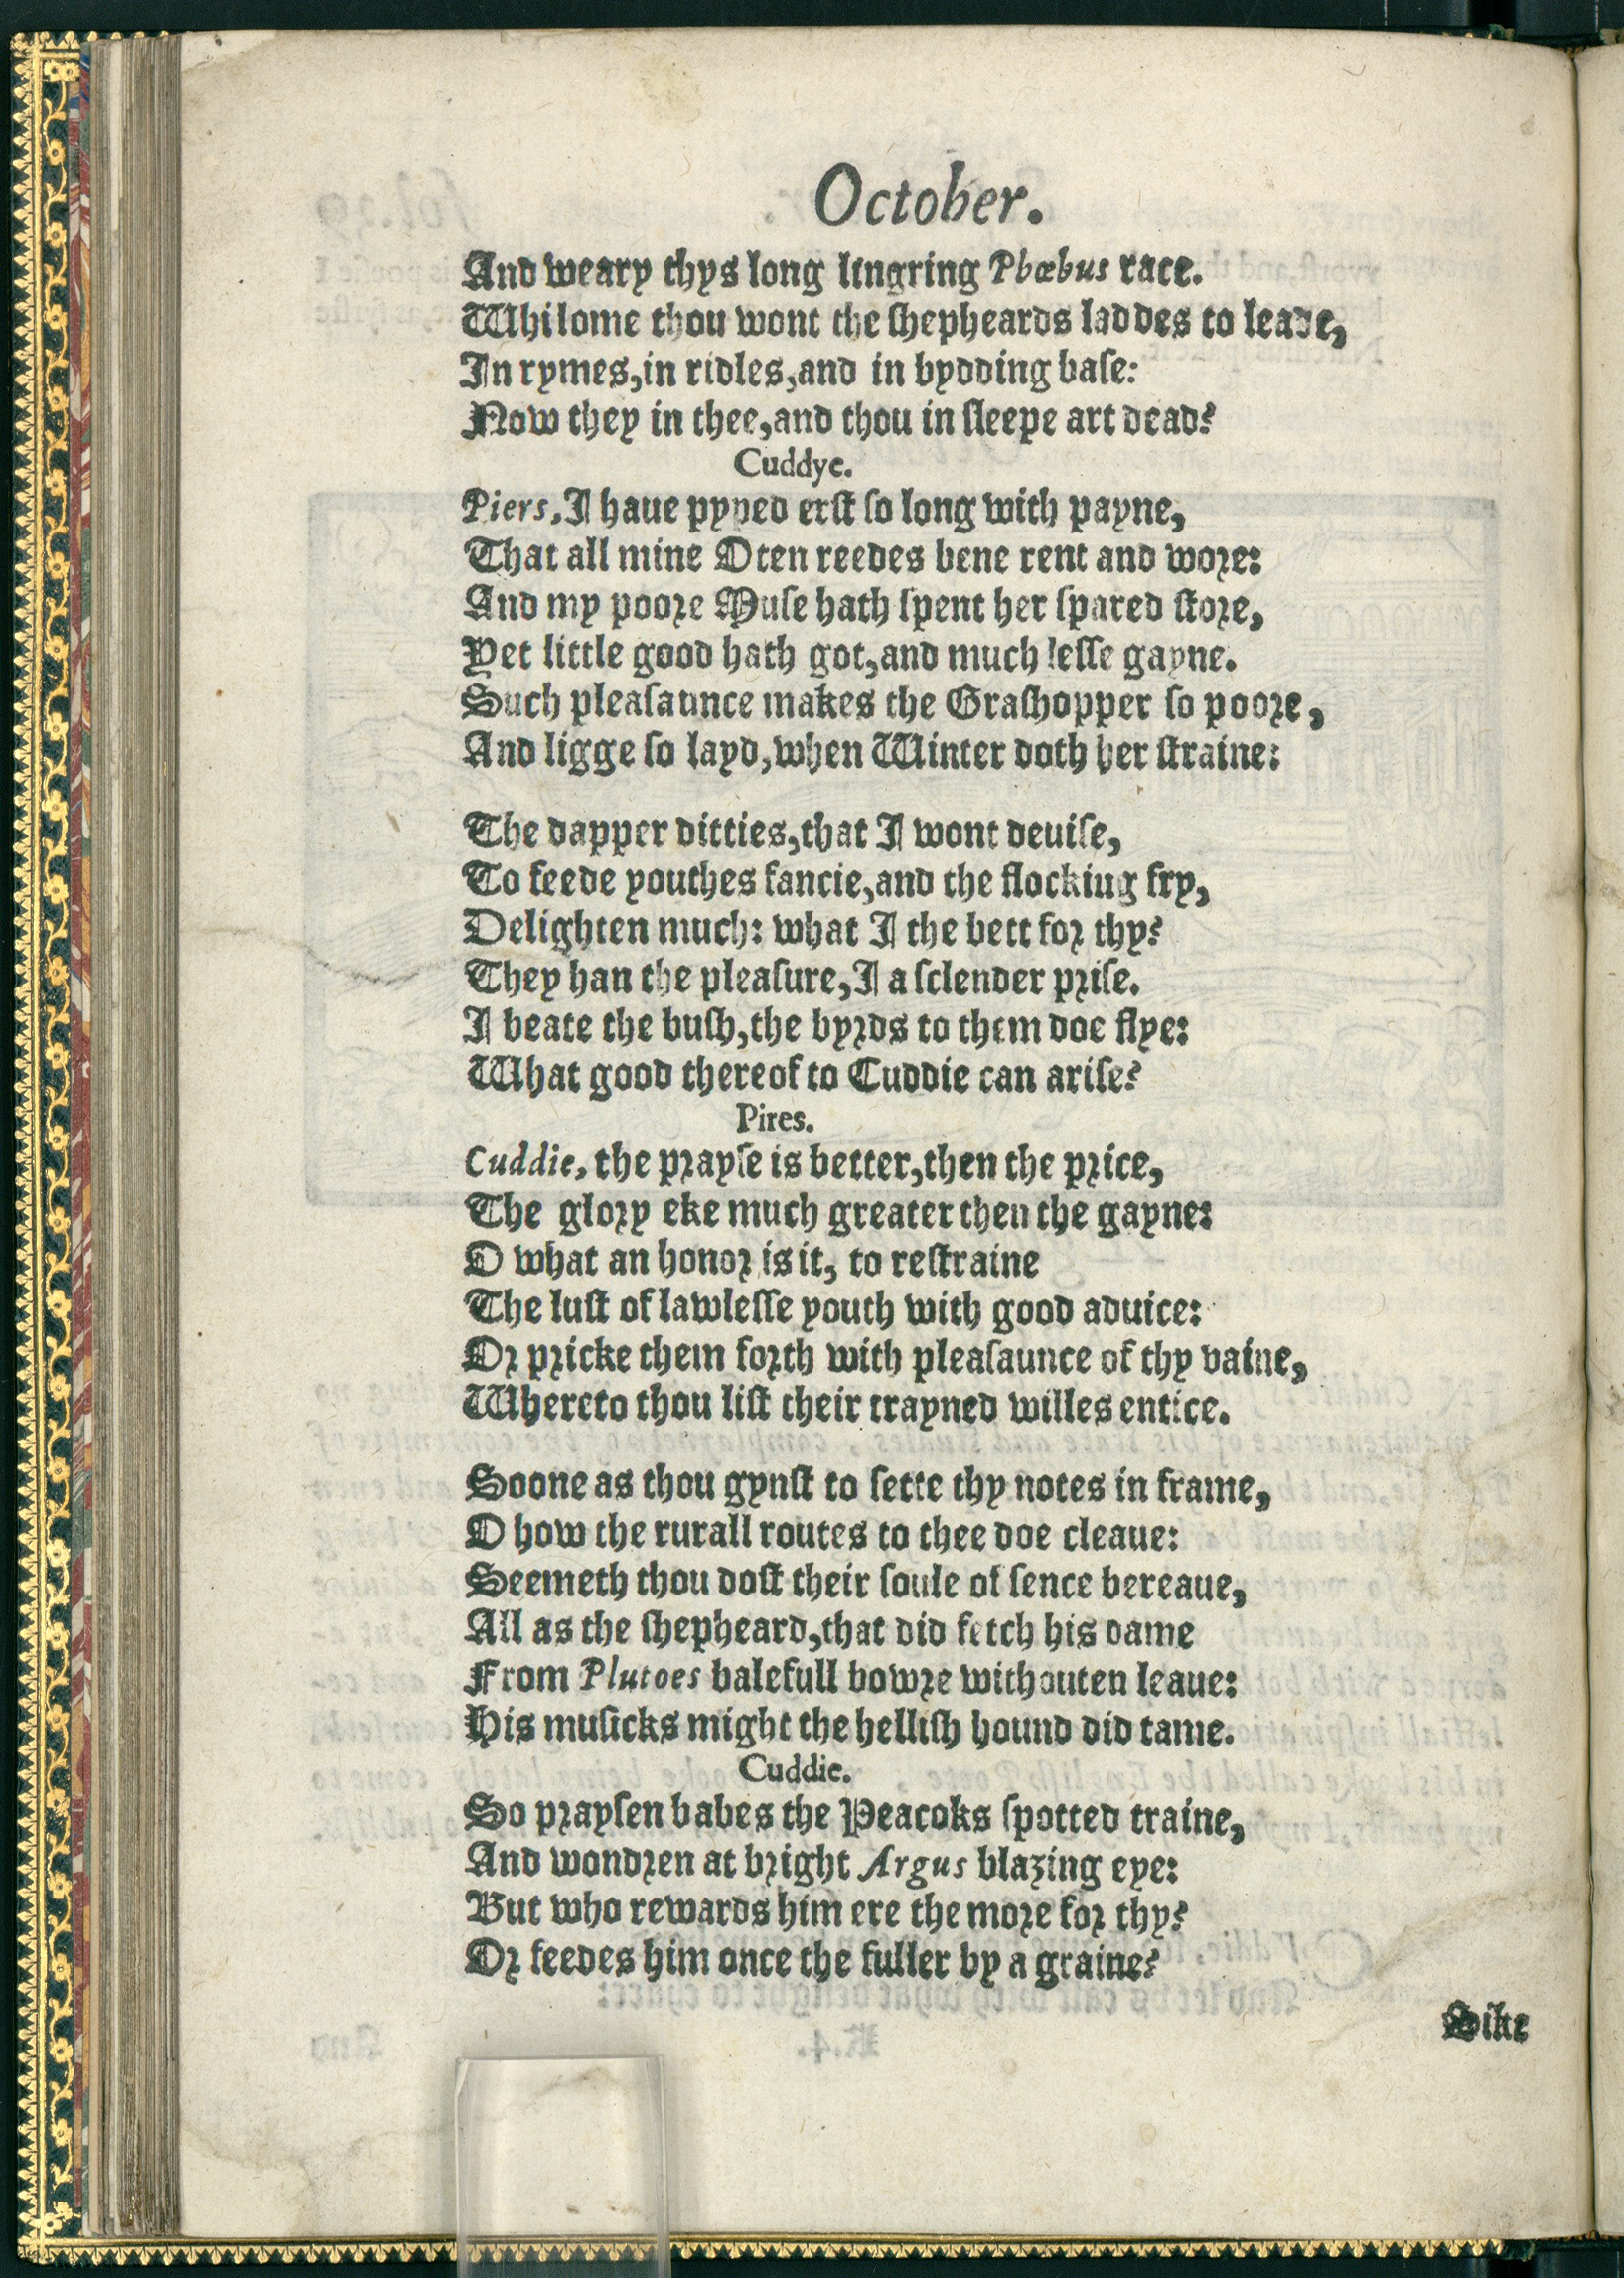 October.
And weary thys long lingring Phœbus race.
Whilome thou wont the ſhepheards laddes to leade,
In rymes,in ridles,and in bydding baſe:
Now they in thee,and thou in ſleepe art dead?
Cuddye.
Piers,I haue pyped erſt ſo long with payne,
That all mine Oten reedes bene rent and wore:
And my poore Muſe hath ſpent her ſpared ſtore,
Yet little good hath got,and much leſſe gayne.
Such pleaſaunce makes the Graſhopper ſo poore,
And ligge ſo layd,when Winter doth her ſtraine:
The dapper ditties,that I wont deuiſe,
To feede youthes fancie,and the flocking fry,
Delighten much: what I the bett for thy?
They han the pleaſure,I a ſclender priſe.
I beate the buſh,the byrds to them doe flye:
What good thereof to Cuddie can ariſe?
Pires.
Cuddie, the prayſe is better,then the price,
The glory eke much greater then the gayne:
O what an honor is it, to reſtraine
The luſt of lawleſſe youth with good aduice:
Or pricke them forth with pleaſaunce of thy vaine,
Whereto thou liſt their trayned willes entice.
Soone as thou gynſt to ſette thy notes in frame,
O how the rurall routes to thee doe cleaue:
Seemeth thou doſt their ſoule of ſence bereaue,
All as the ſhepheard,that did fetch his dame
From Plutoes balefull bowre withouten leaue:
His muſicks might the helliſh hound did tame.
Cuddie.
So prayſen babes the Peacoks ſpotted traine,
And wondren at bright Argus blazing eye:
But who rewards him ere the more for thy?
Or feedes him once the fuller by a graine?
Sike